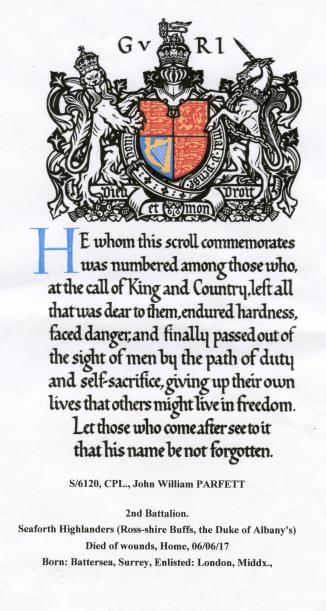 G V R I
Dieu et mon Droit
HE whom this scroll commemorates
was numbered among those who,
at the call of King and Country, left all
that was dear to them, endured hardness,
faced danger, and finally passed out of
the sight of men by the path of duty
and self-sacrifice, giving up their own
lives that others might live in freedom.
Let those who come after see to it
that his name be not forgotten.
S/6120, CPL., John William PARFETT
2nd Battalion.
Seaforth Highlanders (Ross-shire Buffs, the Duke of Albany's)
Died of wounds, Home, 06/06/17
Born: Battersea, Surrey, Enlisted: London, Middx.,